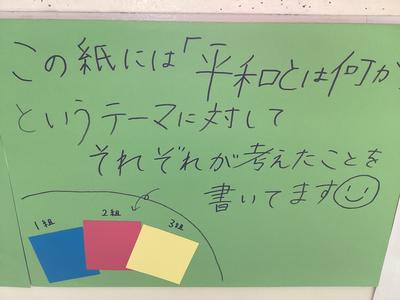 この紙には「平和とは何か
というテーマに対して
それぞれが考えたことを
書いてます
1組 2組 3組